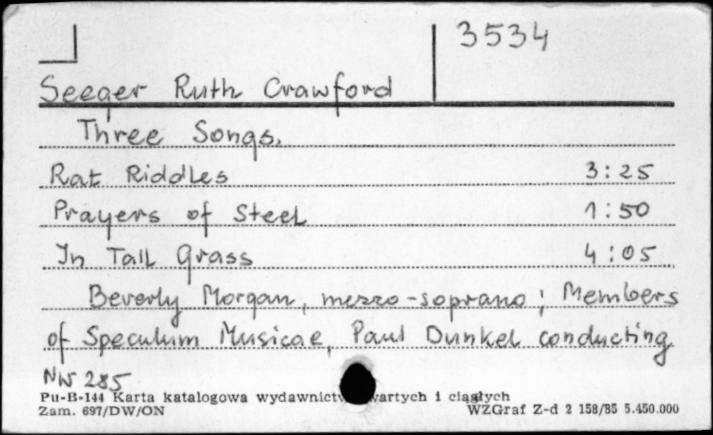 3534
Seeger Ruth Crawford
Three Songs.
Rat Riddles 3:25
Prayers of Steel 1:50
In Tall Grass 4:05
Beverly Morgan, mezzo-soprano; Members
of Speculum Musicae, Paul Dunkel conducting
NW 285
Pu-B-144 Karta katalogowa wydawnictw zwartych i ciągłych
Zam. 697/DW/ON WZGraf Z-d 2 158/85 5.450.000